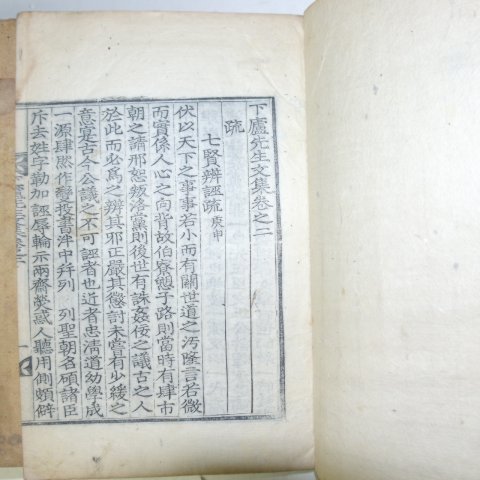 下廬先生文集卷之二
疏
七賢辨誣疏 庚申
伏以天下之事事若小而有關世道之汚隆言若微
而實係人心之向背故伯寮愬子路則當時有肆市
朝之請邢恕攻洛黨則後世有誅姦佞之議古之人
於此而必爲之辨其邪正嚴其懲討未嘗有少緩之
意寔古今公議之不可誣者也近者忠淸道幼學成
一源肆然作變投書泮中幷列 列聖朝名碩諸臣
斥去姓字勒加誣辱輪示兩齋熒惑人聽用側頗僻